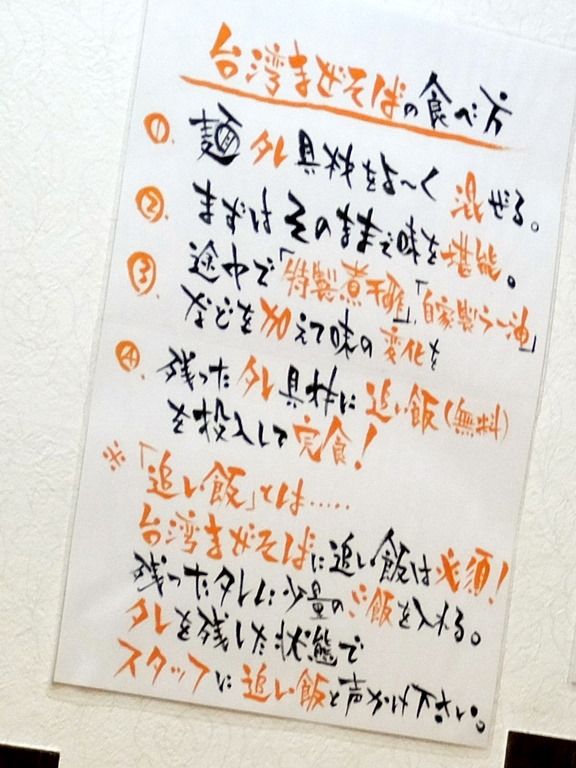 台湾まぜそばの食べ方
①. 麺タレ具材をよ〜く混ぜる。
②. まずはそのままで味を堪能。
③. 途中で「特製煮干酢」「自家製ラー油」
などを加えて味の変化を
④. 残ったタレ具材に追い飯(無料)
を投入して完食!
※「追い飯」とは.....
台湾まぜそばに追い飯は必須!
残ったタレに少量のご飯を入れる。
タレを残した状態で
スタッフに追い飯と声かけ下さい。